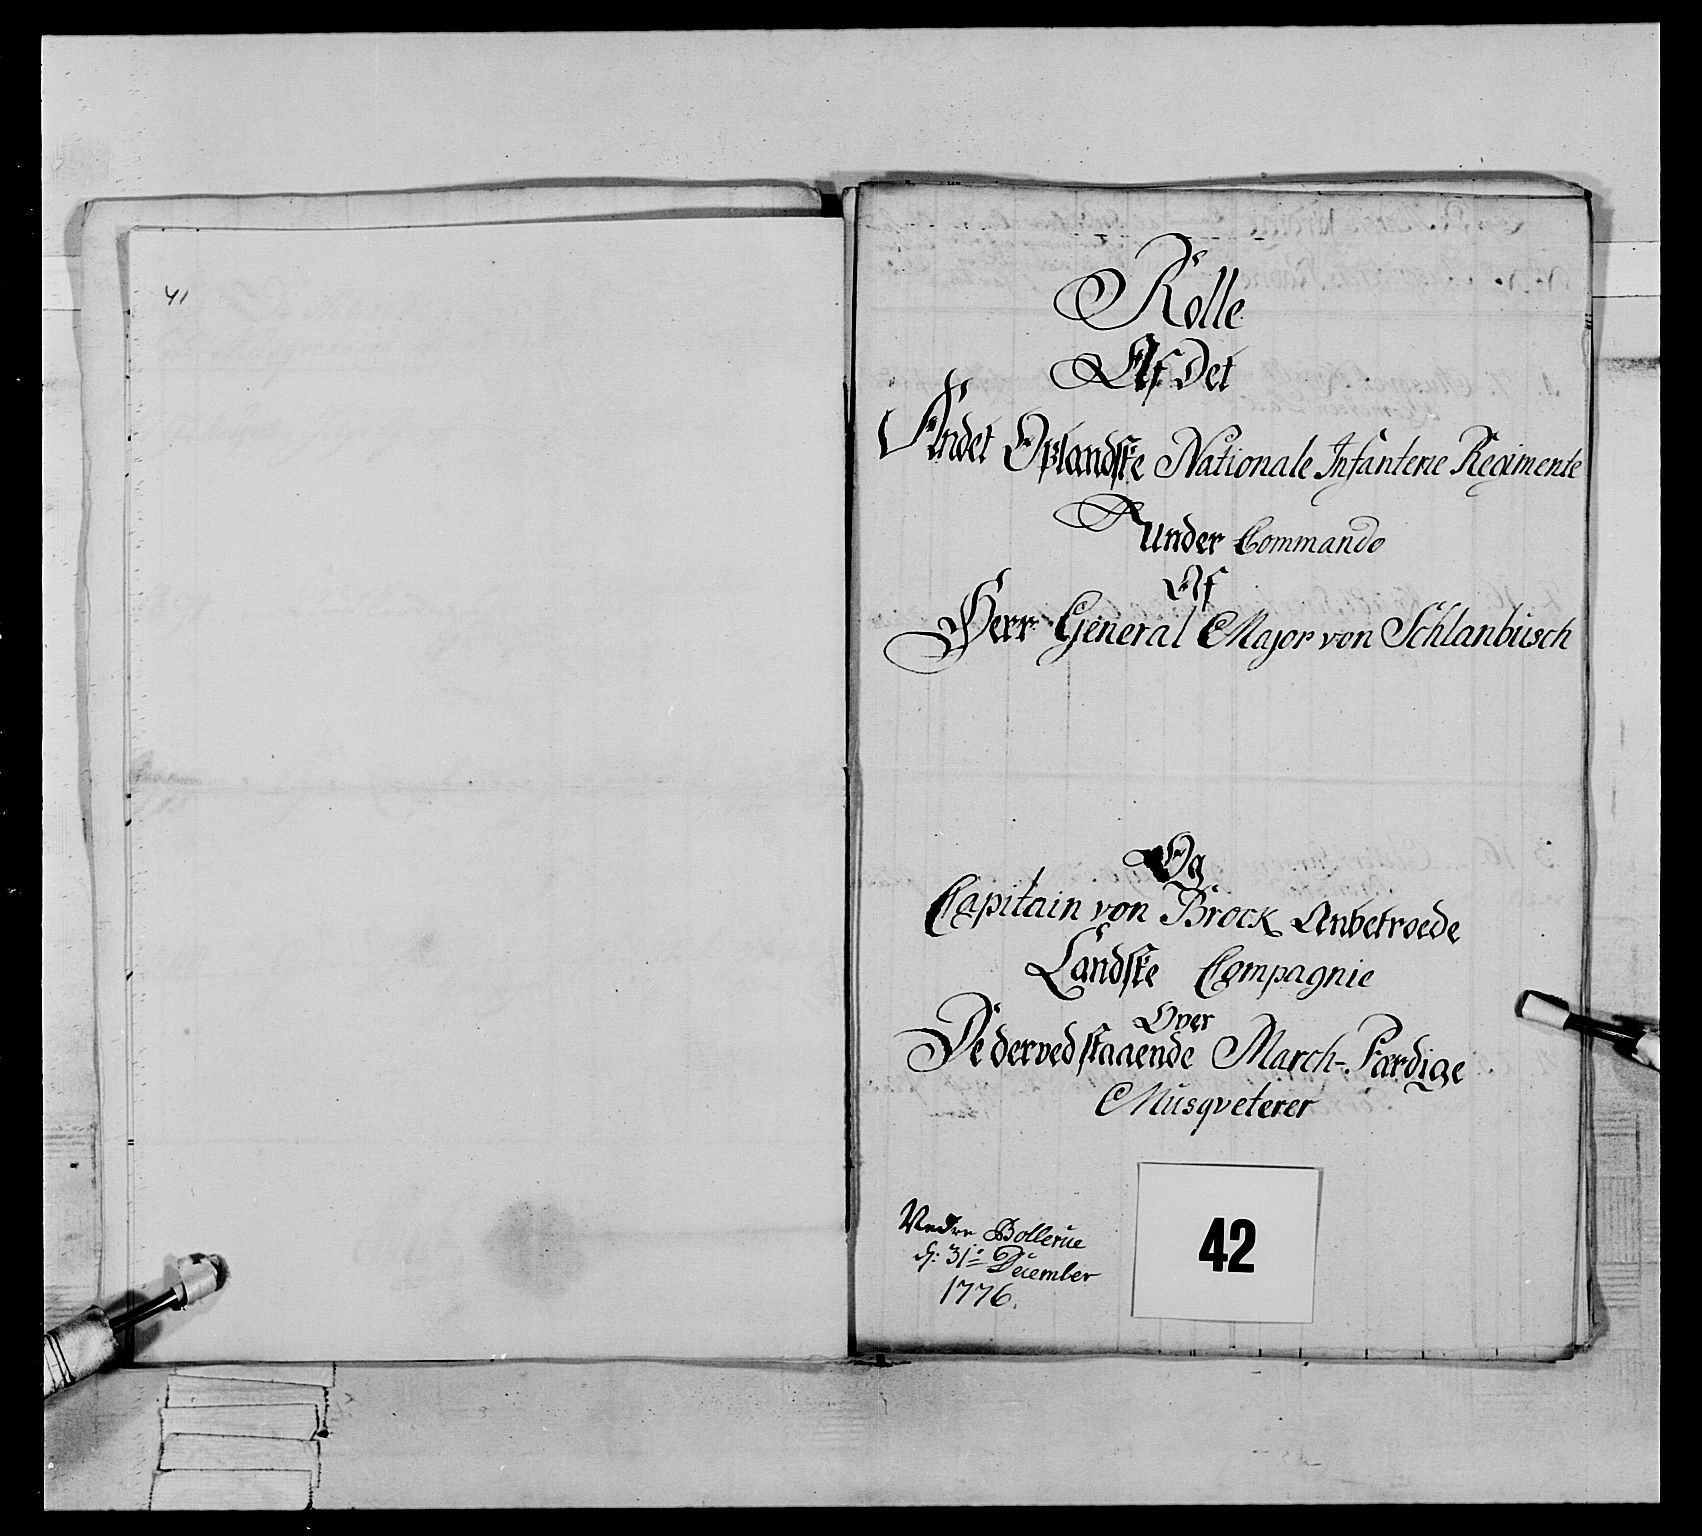 41
Rolle
Af Det
Andet Oplandske Nationale Infanterie Regimente
Under Commando
Af
Herr General Major von Schlanbusch
Og
Capitain von Brock Anbetroede
Landske Compagnie
Over
De derved staaende March-Færdige
Musqveterer
Bollerue
d: 31te December
1776.
42